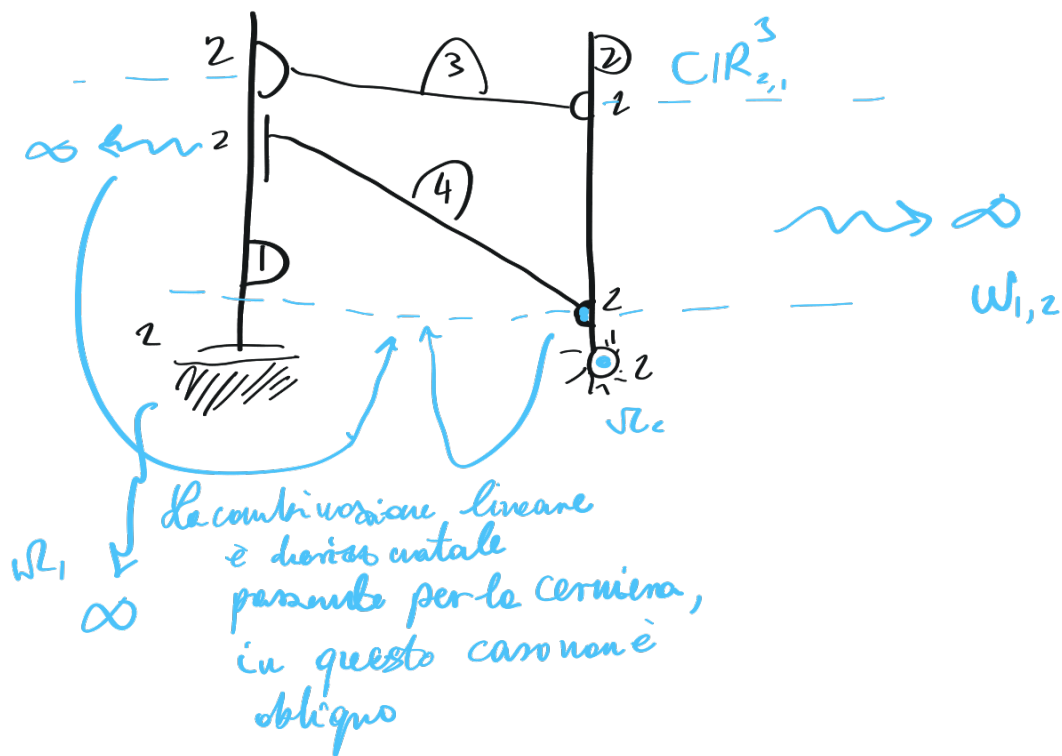 2
3
2
CIR³₂,₁
2
∞
2
4
∞
1
2
ω₁,₂
2
2
Ω₂
La combinazione lineare
è
passante per la cerniera,
in questo caso non è
obliquo
Ω₁
∞